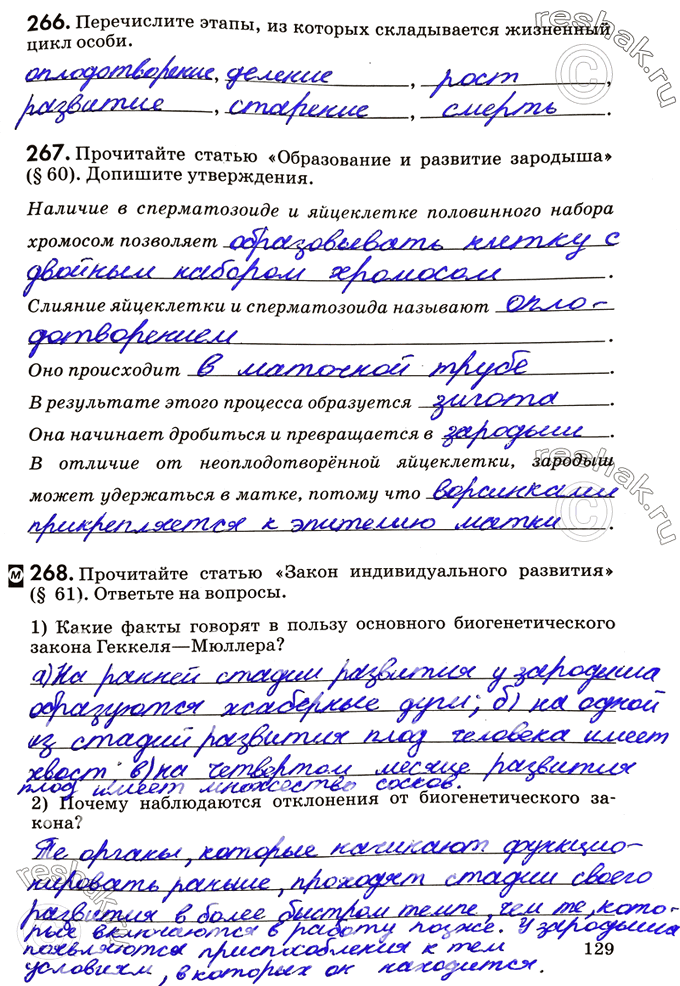 266. Перечислите этапы, из которых складывается жизненный
цикл особи.
оплодотворение, деление, рост,
развитие, старение, смерть.
267. Прочитайте статью «Образование и развитие зародыша»
(§ 60). Допишите утверждения.
Наличие в сперматозоиде и яйцеклетке половинного набора
хромосом позволяет образовывать клетку с
двойным набором хромосом.
Слияние яйцеклетки и сперматозоида называют опло-
дотворением.
Оно происходит в маточной трубе.
В результате этого процесса образуется зигота.
Она начинает дробиться и превращается в зародыш.
В отличие от неоплодотворённой яйцеклетки, зародыш
может удержаться в матке, потому что ворсинками
прикрепляется к эпителию матки.
М 268. Прочитайте статью «Закон индивидуального развития»
(§ 61). Ответьте на вопросы.
1) Какие факты говорят в пользу основного биогенетического
закона Геккеля—Мюллера?
а) На ранней стадии развития у зародыша
образуются жаберные дуги; б) на одной
из стадий развития плод человека имеет
хвост; в) на четвертом месяце развития
плод имеет множество сосков.
2) Почему наблюдаются отклонения от биогенетического за-
кона?
Те органы, которые начинают функцио-
нировать раньше, проходят стадии своего
развития в более быстром темпе, чем те, кото-
рые включаются в работу позже. У зародыша
появляются приспособления к тем
условиям, в которых он находится.
129
reshak.ru
reshak.ru
reshak.ru
reshak.ru